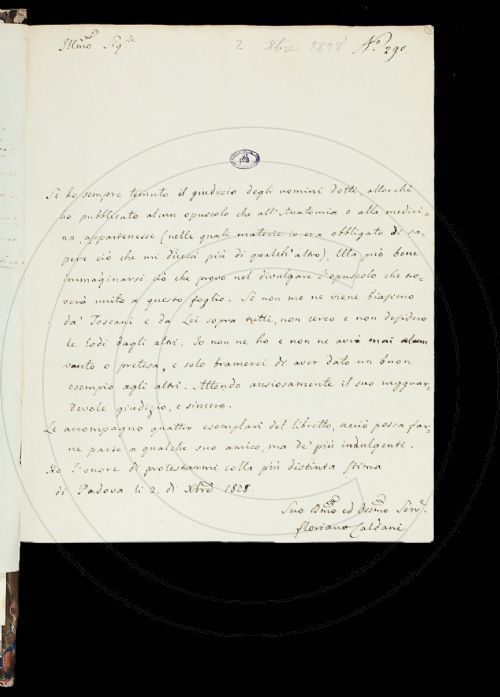 Illmo Sigre
2 Xbre 1828 No 290
Se ho sempre temuto il giudizio degli uomini dotti, allorchè
ho pubblicato alcun opuscolo che all'Anatomia o alla medici-
na appartenesse (nelle quali materie io era obbligato di sa-
pere ciò che mi dicessi più di qualch'altro), Ella può bene
immaginarsi ciò che provo nel divulgare l'opuscolo che tro-
verà unito a questo foglio. Se non me ne viene biasimo
da' Toscani e da Lei sopra tutti, non cerco e non desidero
le lodi dagli altri. Io non ne ho e non ne avrò mai alcun
vanto o pretesa, e solo bramerei di aver dato un buon
esempio agli altri. Attendo ansiosamente il suo ragguar-
devole giudizio, e sincero.
Le accompagno quattro esemplari del libretto, acciò possa far-
ne parte a qualche suo amico, ma de' più indulgenti.
Ho l'onore di protestarmi colla più distinta stima
di Padova li 2. di Xbre 1828.
Suo Dmo ed Obbmo Serv.
Floriano Caldani